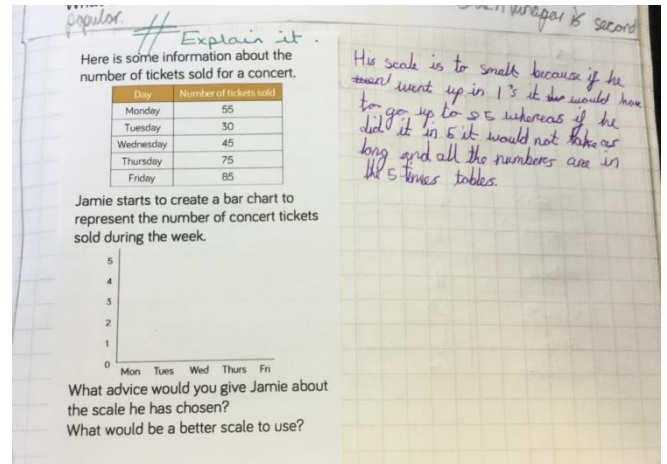 popular.
is second
# Explain it.
Here is some information about the
number of tickets sold for a concert.
Day Number of tickets sold
Monday 55
Tuesday 30
Wednesday 45
Thursday 75
Friday 85
Jamie starts to create a bar chart to
represent the number of concert tickets
sold during the week.
5
4
3
2
1
0
Mon Tues Wed Thurs Fri
What advice would you give Jamie about
the scale he has chosen?
What would be a better scale to use?
His scale is to small because if he
went up in 1's it would have
to go up to 85 whereas if he
did it in 5 it would not take as
long and all the numbers are in
the 5 times tables.